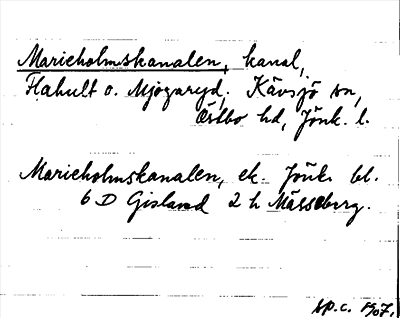 Marieholmskanalen, kanal,
Flahult o. Mjogaryd, Kävsjö sn,
Östbo hd, Jönk. l.
Marieholmskanalen, ek. Jönk. bl.
6 D Gislaved 2 h Mässeberg.
sp.c. 1967.